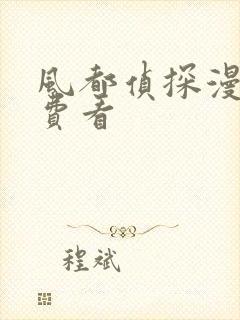 風都偵探漫
費看
程斌